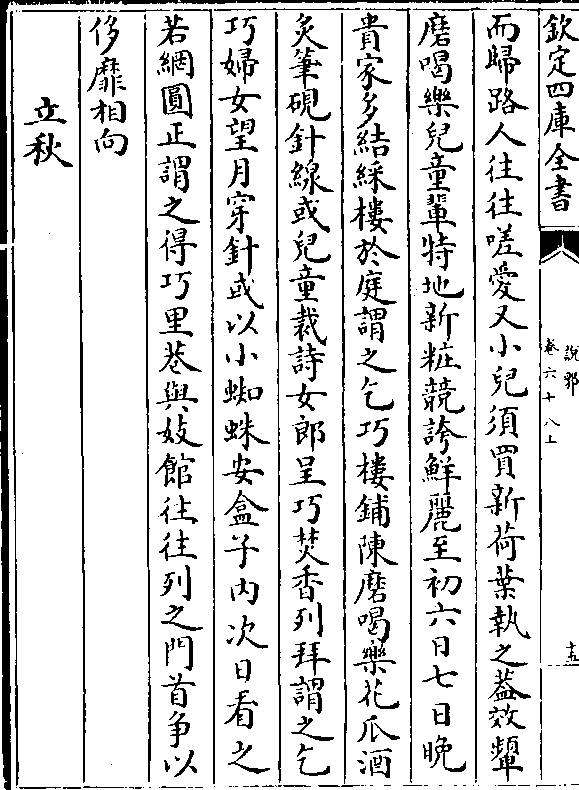 欽定四庫全書
說郛
卷六十八上
十五
而歸路人往往嗟愛又小兒須買新荷葉執之葢效顰
磨喝樂兒童輩特地新粧競誇鮮麗至初六日七日晚
貴家多結綵樓於庭謂之乞巧樓鋪陳磨喝樂花瓜酒
炙筆硯針線或兒童裁詩女郎呈巧焚香列拜謂之乞
巧婦女望月穿針或以小蜘蛛安盒子内次日看之
若網圓正謂之得巧里巷與妓館往往列之門首争以
侈靡相向
立秋